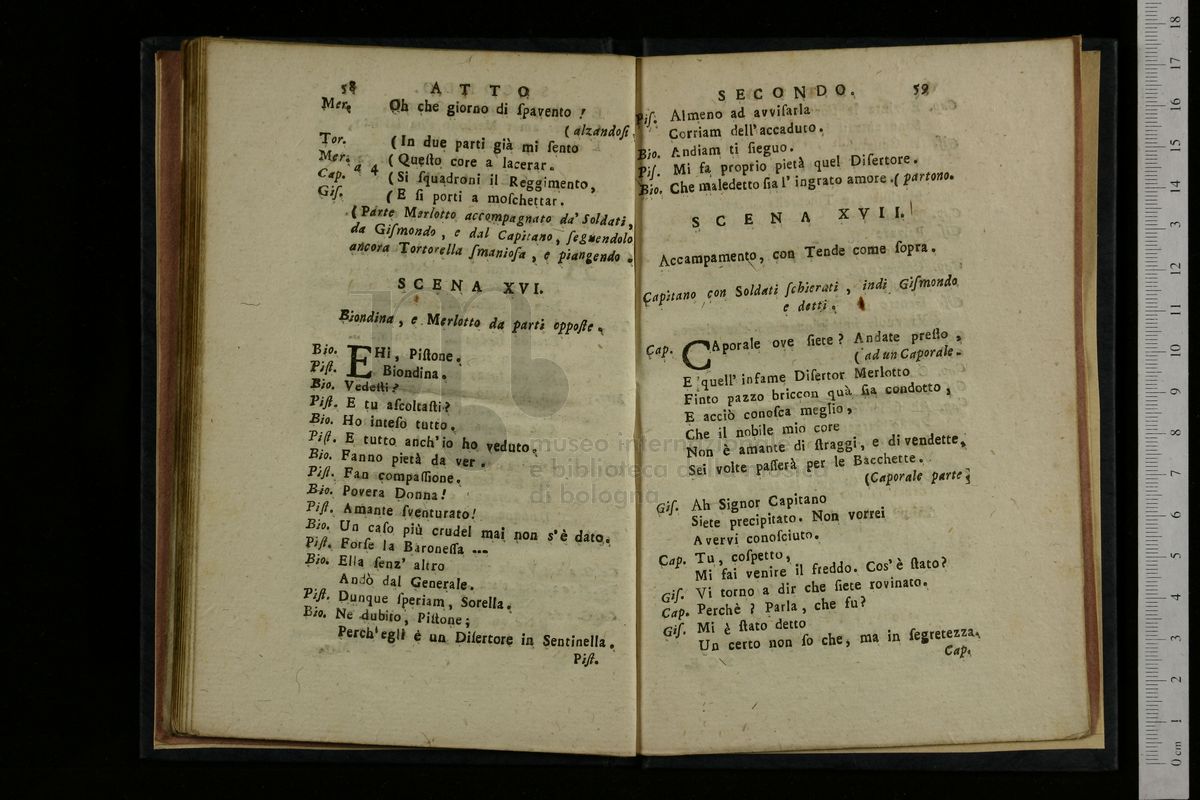 58 ATTO
Mer. Oh che giorno di ſpavento !
( alzandoſi.
Tor. (In due parti già mi ſento
Mer. a 4 (Queſto core a lacerar.
Cap. (Si ſquadroni il Reggimento,
Giſ. (E ſi porti a moſchettar.
(Parte Merlotto accompagnato da' Soldati,
da Giſmondo, e dal Capitano, ſeguendolo
ancora Tortorella ſmanioſa, e piangendo.
SCENA XVI.
Biondina, e Merlotto da parti oppoſte.
Bio. EHi, Piſtone.
Piſt. Biondina.
Bio. Vedeſti?
Piſt. E tu aſcoltaſti?
Bio. Ho inteſo tutto.
Piſt. E tutto anch'io ho veduto.
Bio. Fanno pietà da ver.
Piſt. Fan compaſſione.
Bio. Povera Donna!
Piſt. Amante ſventurato!
Bio. Un caſo più crudel mai non s'è dato.
Piſt. Forſe la Baroneſſa ...
Bio. Ella ſenz' altro
Andò dal Generale.
Piſt. Dunque ſperiam, Sorella.
Bio. Ne dubito, Piſtone;
Perch'egli è un Diſertore in Sentinella.
Piſt.
SECONDO. 59
Piſ. Almeno ad avviſarla
Corriam dell'accaduto.
Bio. Andiam ti ſieguo.
Piſ. Mi fa proprio pietà quel Diſertore.
Bio. Che maledetto ſia l' ingrato amore.( partono.
SCENA XVII.
Accampamento, con Tende come ſopra.
Capitano con Soldati ſchierati, indi Giſmondo
e detti.
Cap. CAporale ove ſiete? Andate preſto,
( ad un Caporale.
E quell' infame Diſertor Merlotto
Finto pazzo briccon quà ſia condotto,
E acciò conoſca meglio,
Che il nobile mio core
Non è amante di ſtraggi, e di vendette,
Sei volte paſſerà per le Bacchette.
(Caporale parte.
Giſ. Ah Signor Capitano
Siete precipitato. Non vorrei
Avervi conoſciuto.
Cap. Tu, coſpetto,
Mi fai venire il freddo. Cos'è ſtato?
Giſ. Vi torno a dir che ſiete rovinato.
Cap. Perchè ? Parla, che fu?
Giſ. Mi è ſtato detto
Un certo non ſo che, ma in ſegretezza.
Cap.
museo internazionale
e biblioteca della musica
di bologna
0 cm 1 2 3 4 5 6 7 8 9 10 11 12 13 14 15 16 17 18